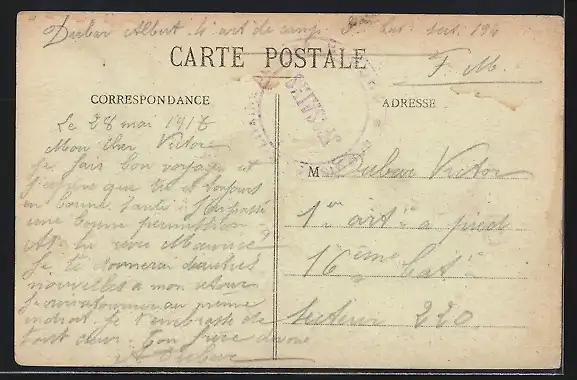 Dubar Albert art de camp sect. 194
CARTE POSTALE
F. M.
CORRESPONDANCE
Le 28 mai 1916
Mon cher Victor
Je fais bon voyage et
j'espère que tu es toujours
en bonne santé
une bonne permission
As tu revu Maurice
Je te donnerai d'autres
nouvelles a mon retour
au même
endroit Je t'embrasse de
tout cœur. Ton frère
A Dubar
ADRESSE
M Dubar Victor
1er art a pied
16ème Bat ie
Secteur 220